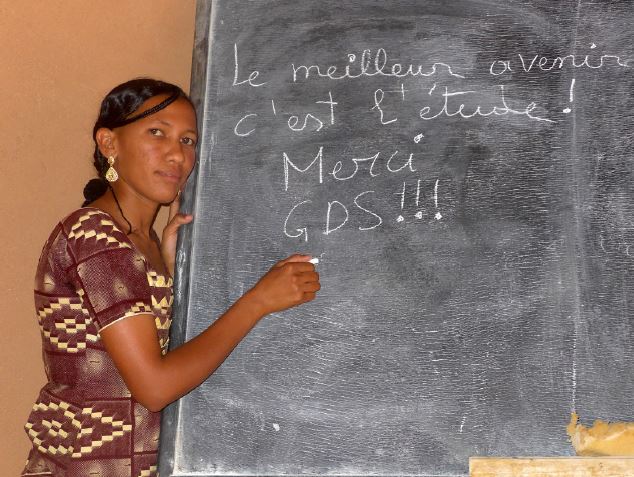 Le meilleur avenir
c'est l'étude!
Merci
GDS!!!